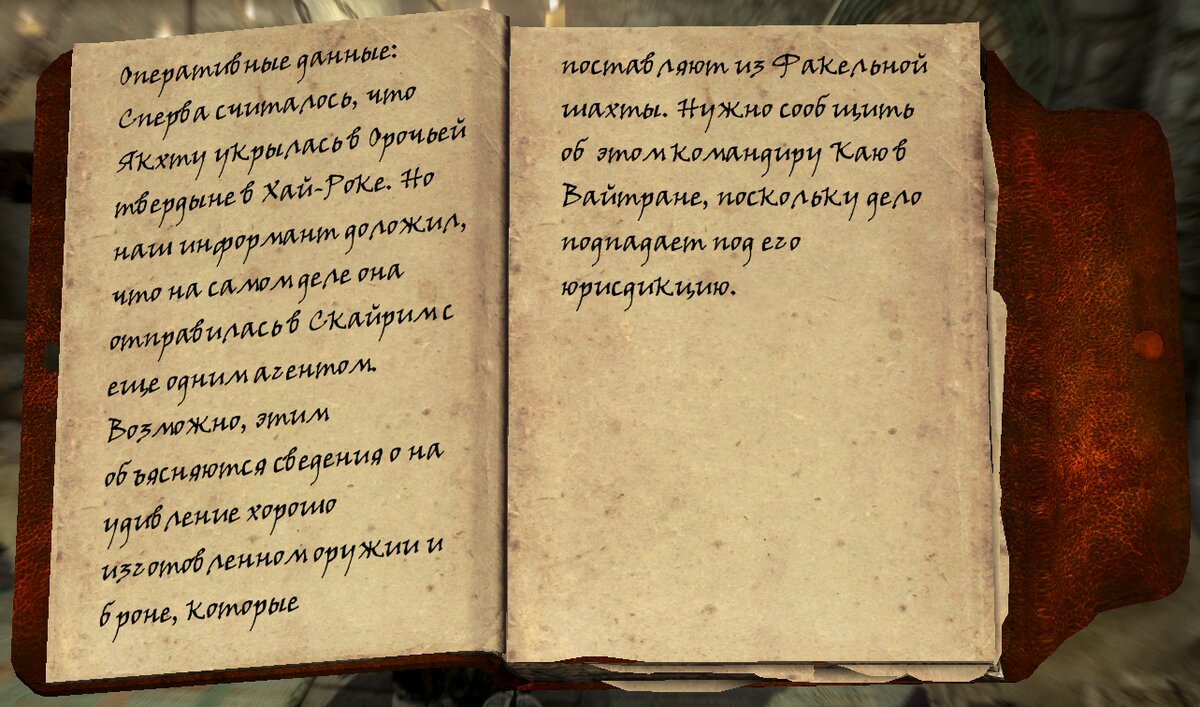 Оперативные данные:
Сперва считалось, что
Якхту укрылась в Орочьей
твердыне в Хай-Роке. Но
наш информант доложил,
что на самом деле она
отправилась в Скайрим с
еще одним агентом.
Возможно, этим
объясняются сведения о на
удивление хорошо
изготовленном оружии и
броне, которые
поставляют из Факельной
шахты. Нужно сообщить
об этом командиру Каю в
Вайтране, поскольку дело
подпадает под его
юрисдикцию.